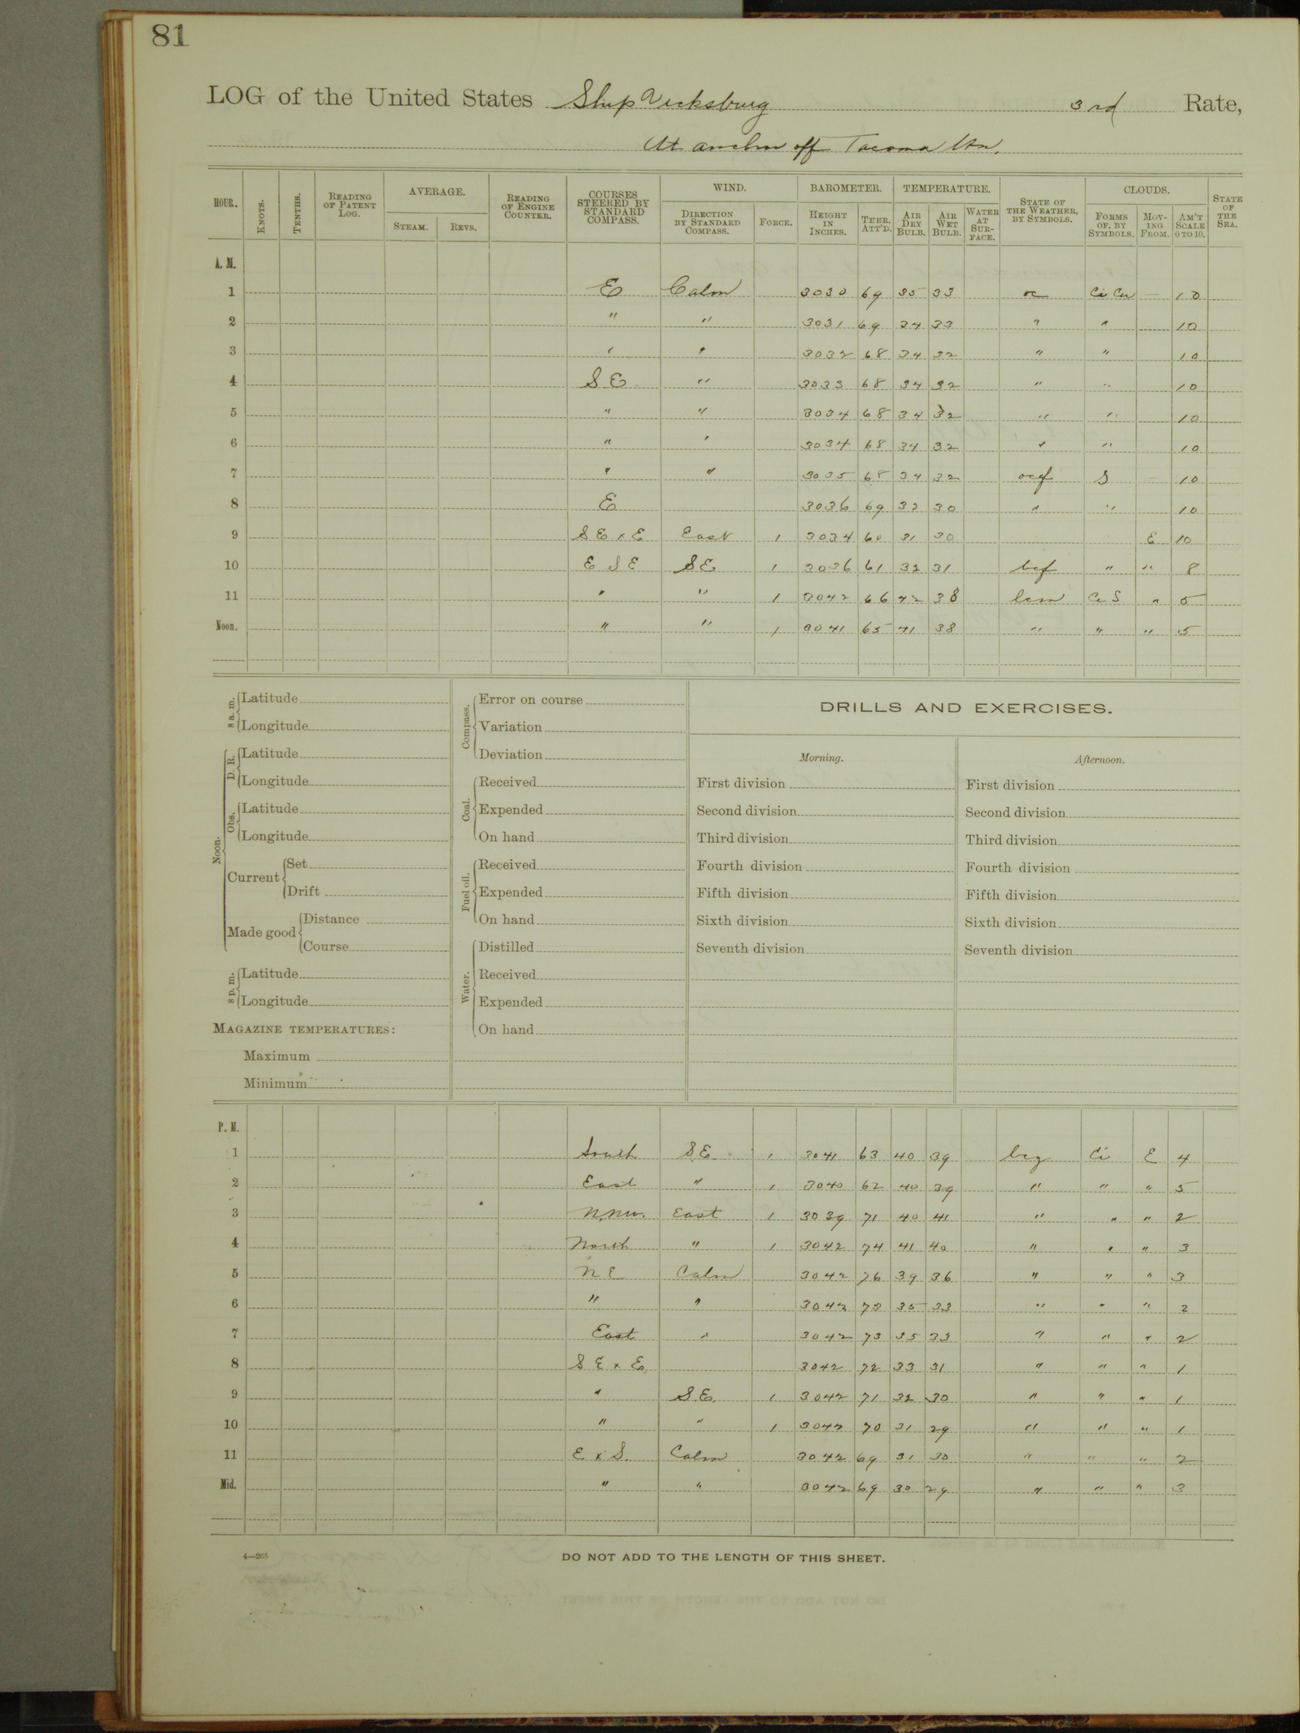 81
LOG of the United States Ship Vicksburg 3rd Rate,
At anchor off Tacoma Wn.
HOUR. KNOTS. TENTHS. READING OF PATENT LOG. AVERAGE. STEAM. REVS. READING OF ENGINE COUNTER. COURSES STEERED BY STANDARD COMPASS. WIND. DIRECTION BY STANDARD COMPASS. FORCE. BAROMETER. HEIGHT IN INCHES. THER. ATT'D. TEMPERATURE. AIR DRY BULB. AIR WET BULB. WATER AT SURFACE. STATE OF THE WEATHER, BY SYMBOLS. CLOUDS. FORMS OF, BY SYMBOLS. MOVING FROM. AM'T SCALE 0 TO 10. STATE OF THE SEA.
A. M.
1 E Calm 3030 69 35 33 oc Ci Cu — 10
2 " " 3031 69 34 33 " " 10
3 " " 3032 68 34 32 " " 10
4 S E " 3033 68 34 32 " " 10
5 " " 3034 68 34 32 " " 10
6 " " 3034 68 34 32 " " 10
7 " " 3035 68 34 32 ocf S — 10
8 E 3036 69 32 30 " " 10
9 S E x E East 1 3034 60 31 30 E 10
10 E S E SE 1 3036 61 32 31 bcf " " 8
11 " " 1 3042 66 42 38 bcm Ci S " 5
Noon. " " 1 3041 65 41 38 " " " 5
8 a. m. Latitude
Longitude
Noon. D. R. Latitude
Longitude
Obs. Latitude
Longitude
Current Set
Drift
Made good Distance
Course
8 p. m. Latitude
Longitude
MAGAZINE TEMPERATURES:
Maximum
Minimum
Compass. Error on course
Variation
Deviation
Coal. Received
Expended
On hand
Fuel oil. Received
Expended
On hand
Water. Distilled
Received
Expended
On hand
DRILLS AND EXERCISES.
Morning.
First division
Second division
Third division
Fourth division
Fifth division
Sixth division
Seventh division
Afternoon.
First division
Second division
Third division
Fourth division
Fifth division
Sixth division
Seventh division
P. M.
1 South S.E. 1 3041 63 40 39 bcz Ci E 4
2 East " 1 3040 62 40 39 " " " 5
3 N.NW. East 1 3039 71 40 41 " " " 2
4 North " 1 3042 74 41 40 " " " 3
5 N E Calm 3042 76 39 36 " " " 3
6 " " 3042 73 35 33 " " " 2
7 East " 3042 73 35 33 " " " 2
8 S E x E. 3042 72 33 31 " " " 1
9 " S.E. 1 3042 71 32 30 " " " 1
10 " " 1 3042 70 31 29 " " " 1
11 E x S. Calm 3042 69 31 30 " " " 2
Mid. " " 3042 69 30 29 " " " 3
4—265
DO NOT ADD TO THE LENGTH OF THIS SHEET.